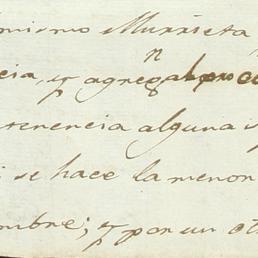 mismo Murrieta
cia, y agregn al pro
tenencia alguna
i se hace la menor
mbre; y por un ot